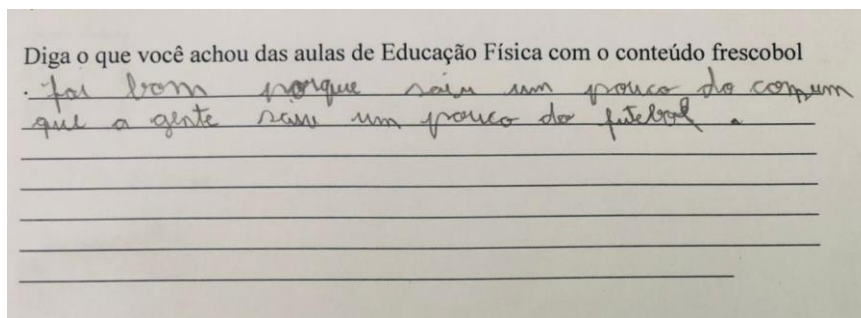 Diga o que você achou das aulas de Educação Física com o conteúdo frescobol
. foi bom porque saiu um pouco do comum
que a gente saiu um pouco do futebol .